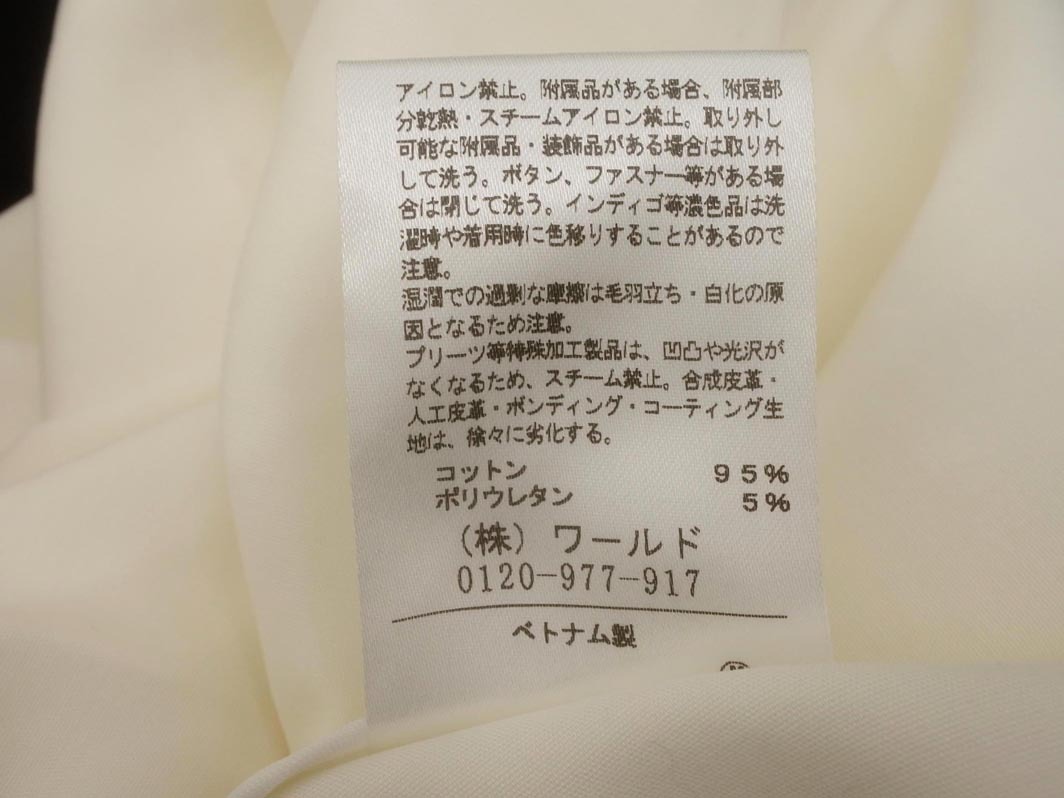 アイロン禁止。附属品がある場合、附属部
分乾熱・スチームアイロン禁止。取り外し
可能な附属品・装飾品がある場合は取り外
して洗う。ボタン、ファスナー等がある場
合は閉じて洗う。インディゴ等濃色品は洗
濯時や着用時に色移りすることがあるので
注意。
湿潤での過剰な摩擦は毛羽立ち・白化の原
因となるため注意。
プリーツ等特殊加工製品は、凹凸や光沢が
なくなるため、スチーム禁止。合成皮革・
人工皮革・ボンディング・コーティング生
地は、徐々に劣化する。
コットン 95%
ポリウレタン 5%
(株)ワールド
0120-977-917
ベトナム製